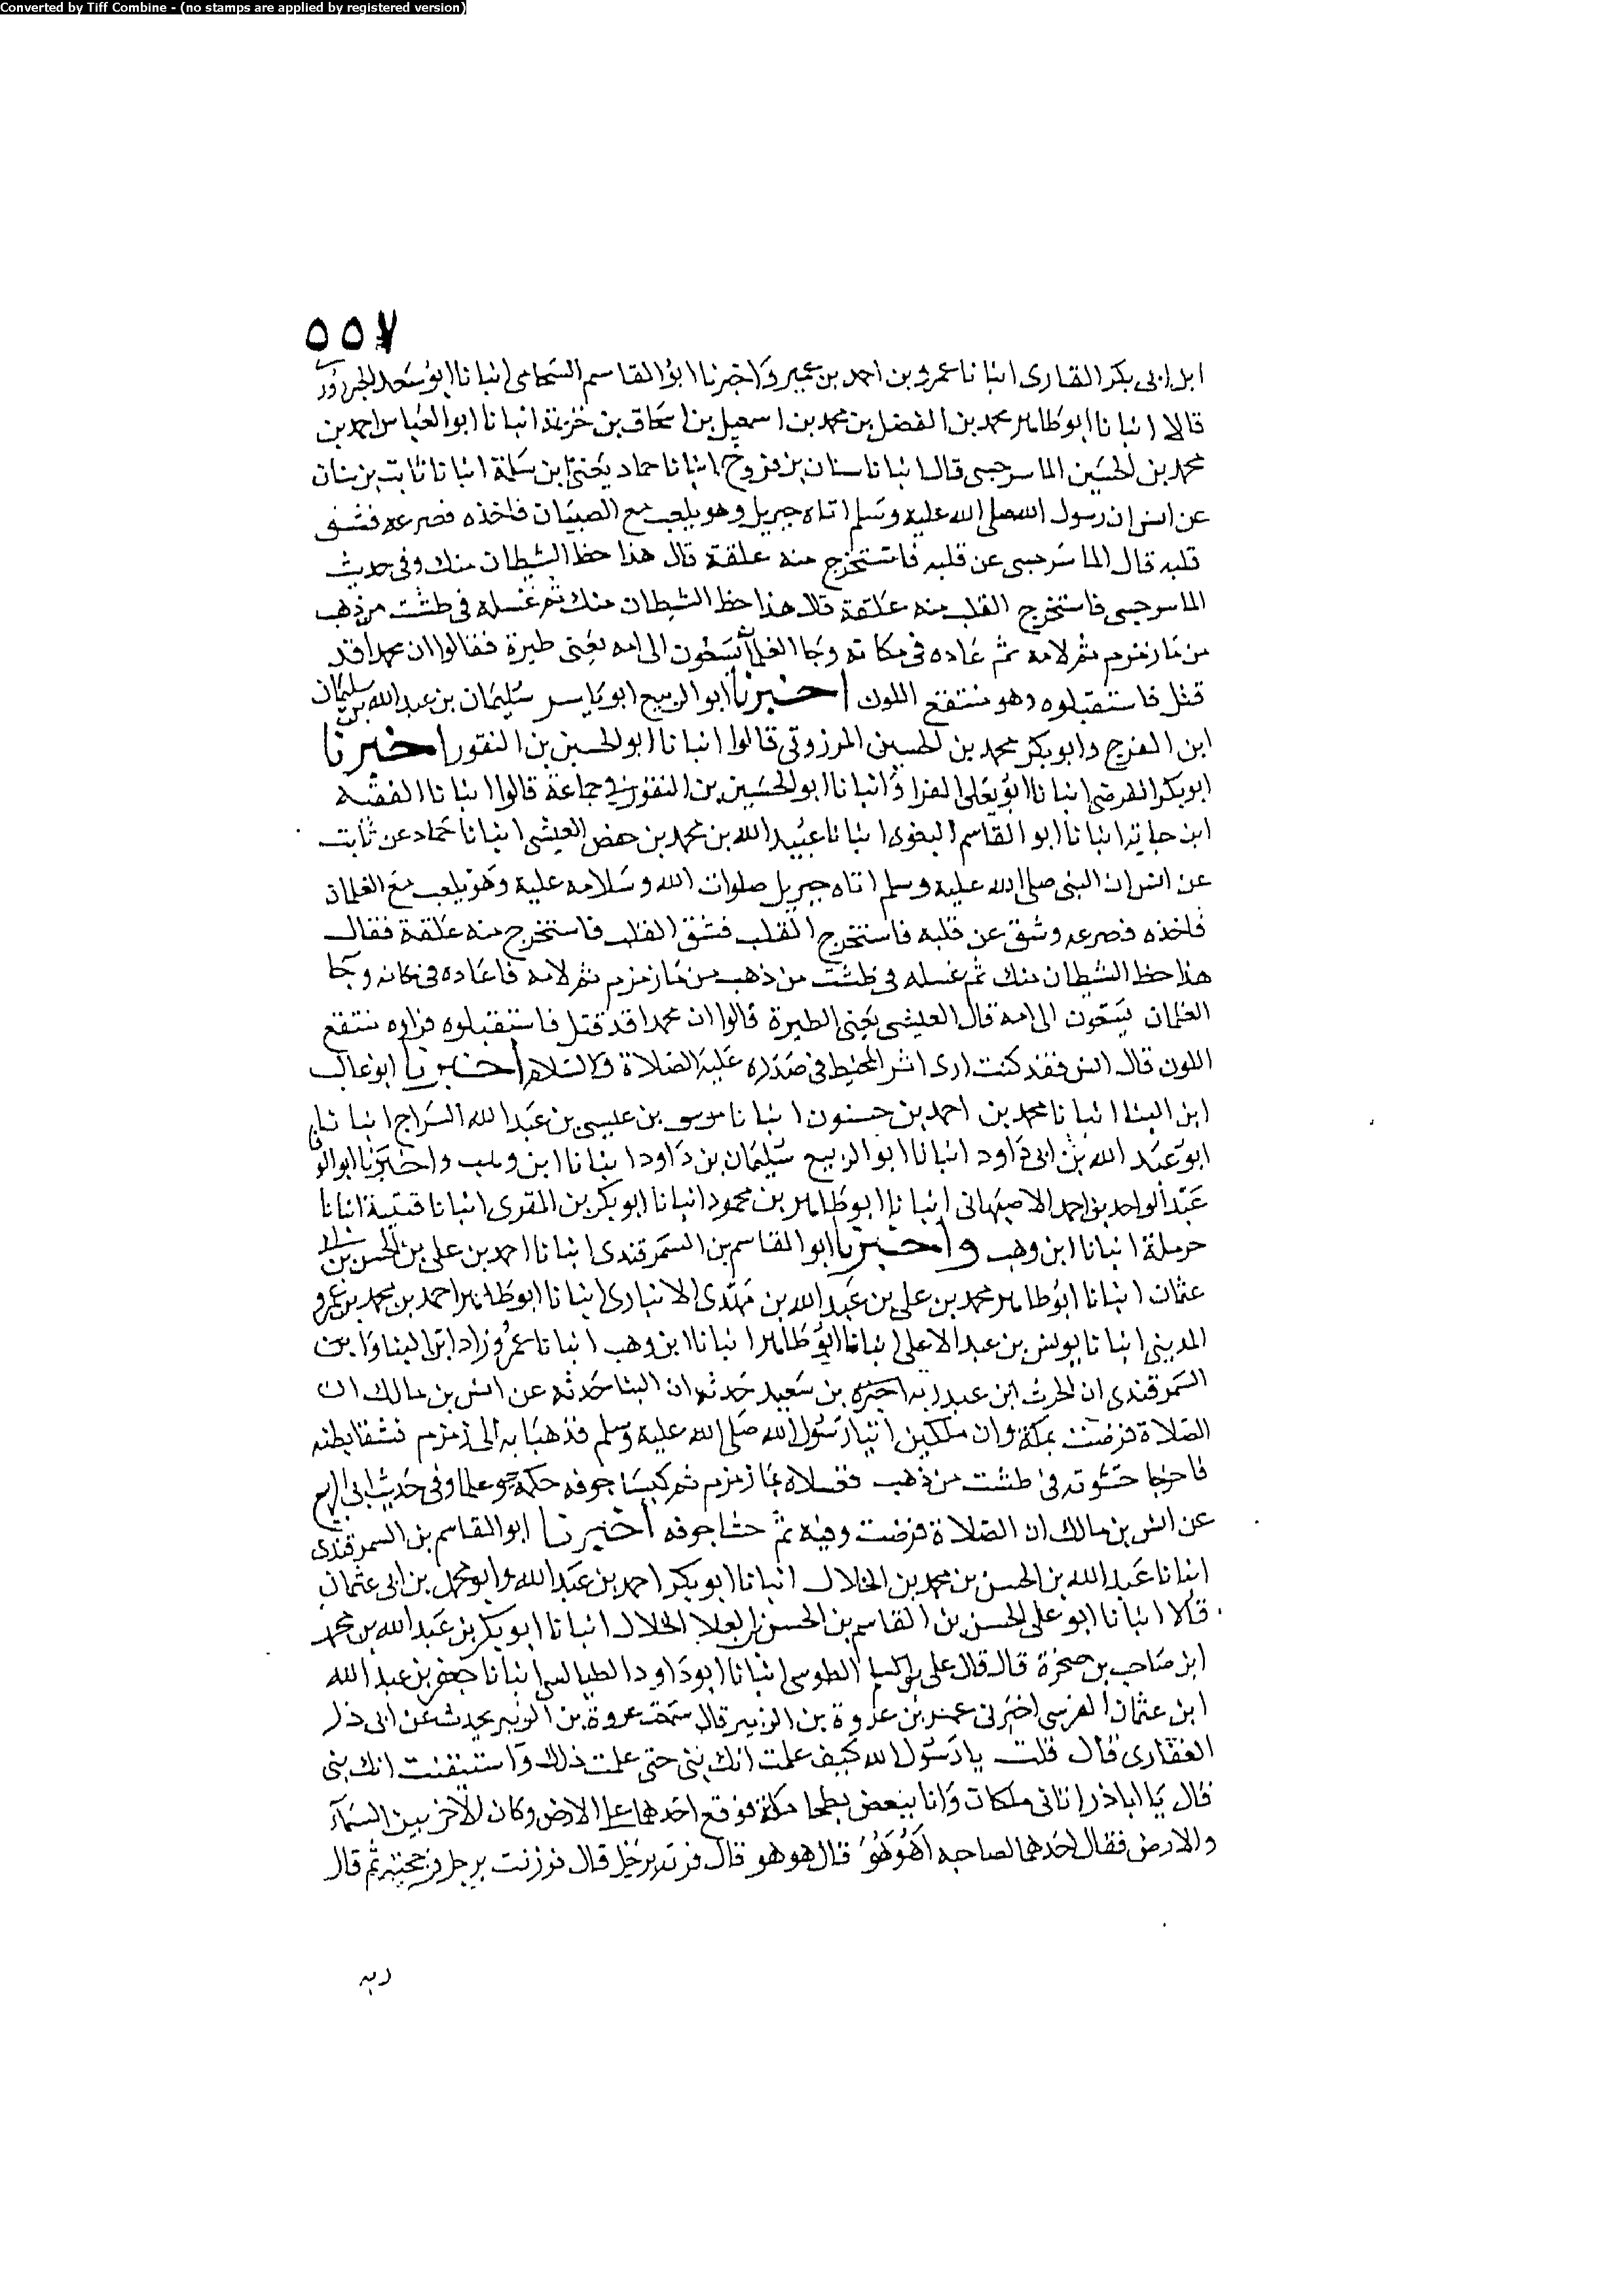 Converted by Tiff Combine - (no stamps are applied by registered version)
٥٥٧
ابى بكر القارى انبانا عمرو بن احمد بن عمير واخبرنا ابو القاسم الشحامى انبانا ابو سعد الجنزرودى
قالا انبانا ابو طاهر محمد بن الفضل بن محمد بن اسمعيل بن اسحاق بن خزيمة انبانا ابو العباس احمد بن
محمد بن الحسين الماسرجسى قال انبانا سنان بن فروخ انبانا حماد يعنى ابن سلمة انبانا ثابت بن بنان
عن انس ان رسول الله صلى الله عليه وسلم اتاه جبريل وهو يلعب مع الصبيان فاخذه فصرعه فشق
قلبه قال الماسرجسى عن قلبه فاستخرج منه علقة قال هذا حظ الشيطان منك وفى حديث
الماسرجسى فاستخرج القلب منه علقة قال هذا حظ الشيطان منك ثم غسله فى طشت من ذهب
من ماء زمزم ثم لامه ثم عاده فى مكانه وجا الغلمان يسعون الى امه يعنى طيرة فقالوا ان محمدا قد
قتل فاستقبلوه وهو منتقع اللون اخبرنا ابو الربيع ابو ياسر سليمان بن عبد الله بن سليمان
ابن الفرج وابو بكر محمد بن الحسين المرزوقى قالوا انبانا ابو الحسين بن النقور اخبرنا
ابو بكر الفرضى انبانا ابو يعلى الفرا وانبانا ابو الحسين بن النقور فى جماعة قالوا انبانا الفقيه
ابن حبابة انبانا ابو القاسم البغوى انبانا عبيد الله بن محمد بن حفص العيشى انبانا حماد عن ثابت
عن انس ان النبى صلى الله عليه وسلم اتاه جبريل صلوات الله وسلامه عليه وهو يلعب مع الغلمان
فاخذه فصرعه وشق عن قلبه فاستخرج القلب فشق القلب فاستخرج منه علقة فقال
هذا حظ الشيطان منك ثم غسله فى طشت من ذهب من ماء زمزم ثم لامه فاعاده فى مكانه وجا
الغلمان يسعون الى امه قال العيشى يعنى الطيرة قالوا ان محمدا قد قتل فاستقبلوه فراوه منتقع
اللون قال انس فقد كنت ارى اثر المخيط فى صدره عليه الصلاة والسلام اخبرنا ابو غالب
ابن البنا انبانا محمد بن احمد بن حسنون انبانا موسى بن عيسى بن عبد الله السراج انبانا
ابو عبد الله بن ابى داود انبانا ابو الربيع سليمان بن داود انبانا ابن وهب واخبرنا ابو الوفا
عبد الواحد بن احمد الاصبهانى انبانا ابو طاهر بن محمود انبانا ابو بكر بن المقرى انبانا قتيبة انبانا
حرملة انبانا ابن وهب واخبرنا ابو القاسم بن السمرقندى انبانا احمد بن على بن الحسن بن
عثمان انبانا ابو طاهر محمد بن على بن عبد الله بن مهدى الانبارى انبانا ابو طاهر احمد بن محمد بن عمرو
المدينى انبانا يونس بن عبد الاعلى انبانا ابو طاهر انبانا ابن وهب انبانا عمرو زاد ابن البنا وابن
السمرقندى ان الحرث ابن عبد ربه اخبره بن سعيد حدثه ان البنا حدثه عن انس بن مالك ان
الصلاة فرضت بمكة وان ملكين اتيا رسول الله صلى الله عليه وسلم فذهبا به الى زمزم فشقا بطنه
فاخرجا حشوته فى طشت من ذهب فغسلاه بماء زمزم ثم كبسا جوفه حكمة وعلما وفى حديث ابى الربيع
عن انس بن مالك ان الصلاة فرضت وفيه ثم حشا جوفه اخبرنا ابو القاسم بن السمرقندى
انبانا عبد الله بن الحسن بن محمد بن الخلال انبانا ابو بكر احمد بن عبد الله وابو محمد بن ابى عثمان
قالا انبانا ابو على الحسن بن القاسم بن الحسن بن العلا الخلال انبانا ابو بكر بن عبد الله بن محمد
ابن صاحب بن صخرة قال قال على الطوسى انبانا ابو داود الطيالسى انبانا جعفر بن عبد الله
ابن عثمان القرسى اخبرنى عمر بن عروة بن الزبير قال سمعت عروة بن الزبير يحدث عن ابى ذر
الغفارى قال قلت يا رسول الله كيف علمت انك نبى حتى علمت ذلك واستيقنت انك نبى
قال يا ابا ذر اتانى ملكان وانا ببعض بطحا مكة فوقع احدهما على الارض وكان الاخر بين السماء
والارض فقال احدهما لصاحبه اهو هو قال هو هو قال فزنه برجل قال فوزنت برجل فرجحته ثم قال
زنه